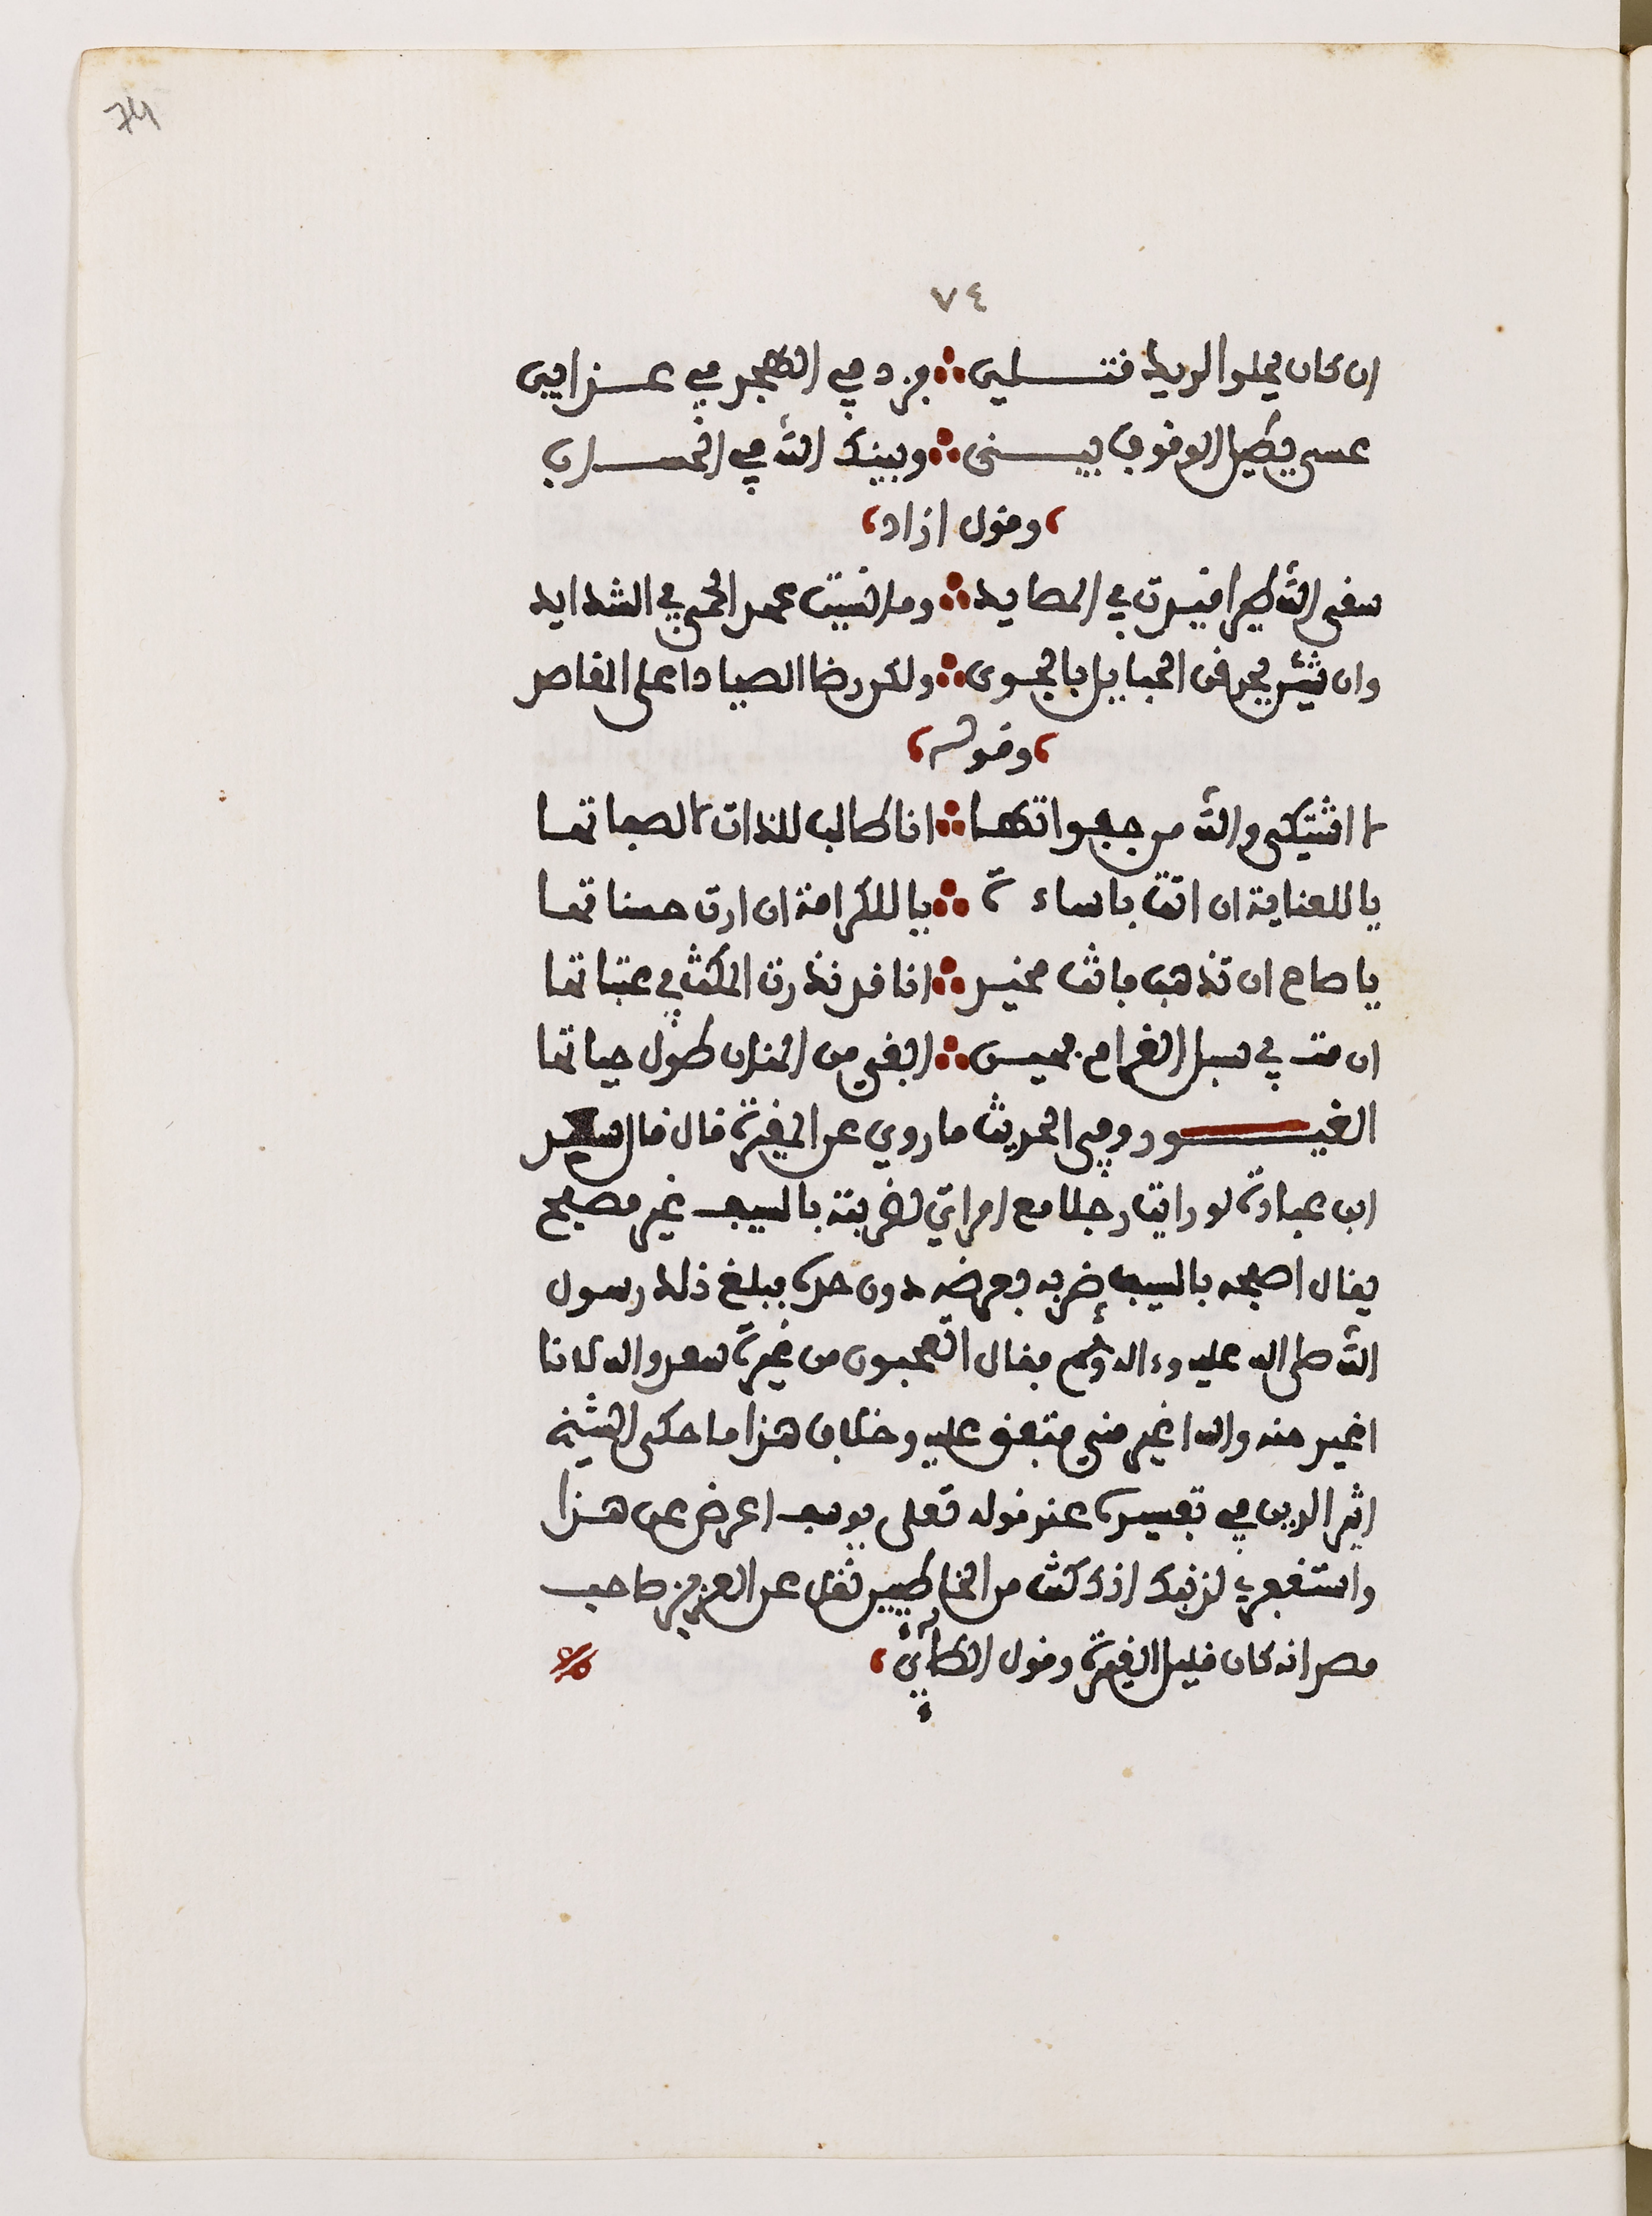 74
٧٤
ان كان يحلو لديك قتلي ؞ فزد في الهجر في عذابي
عسى يطيل الوقوف بيني ؞ وبينك الله في الحساب
، وقول ازاد ،
سقى الله طيرا قيدت في المصايد ؞ وما نسيت عهد الحمى في الشدايد
وان يحرقن الحبايل بالجوى ؞ ولكن رضا الصياد اعلى المقاصد
، وقوله ،
لا اشتكي والله من جفواتها ؞ انا طالب للذات لا لصفاتها
يا للعناية ان اتت باساءة ؞ يا للكرامة ان ارت حسناتها
يا صاح ان تذهب فانت مخير ؞ انا قد نذرت المكث في عتباتها
ان مت في سبل الغرام فحبس ؞ ابغي من المنان طول حياتها
الغيور وفي الحديث ما روي عن المغيرة قال قال سعد
ابن عبادة لو رايت رجلا مع امراتي لضربته بالسيف غير مصفح
يقال اصفحه بالسيف ضربه بعرضه دون حده فبلغ ذلك رسول
الله صلى الله عليه وءاله وسلم فقال اتعجبون من غيرة سعد والله لانا
اغير منه والله اغير مني متفق عليه وخلاف هذا ما حكى الشيخ
اثير الدين في تفسيره عند قوله تعلى يوسف اعرض عن هذا
واستغفري لذنبك انك كنت من الخاطيين نقل عن العزيز صاحب
مصر انه كان قليل الغيرة وقول الطائي ،